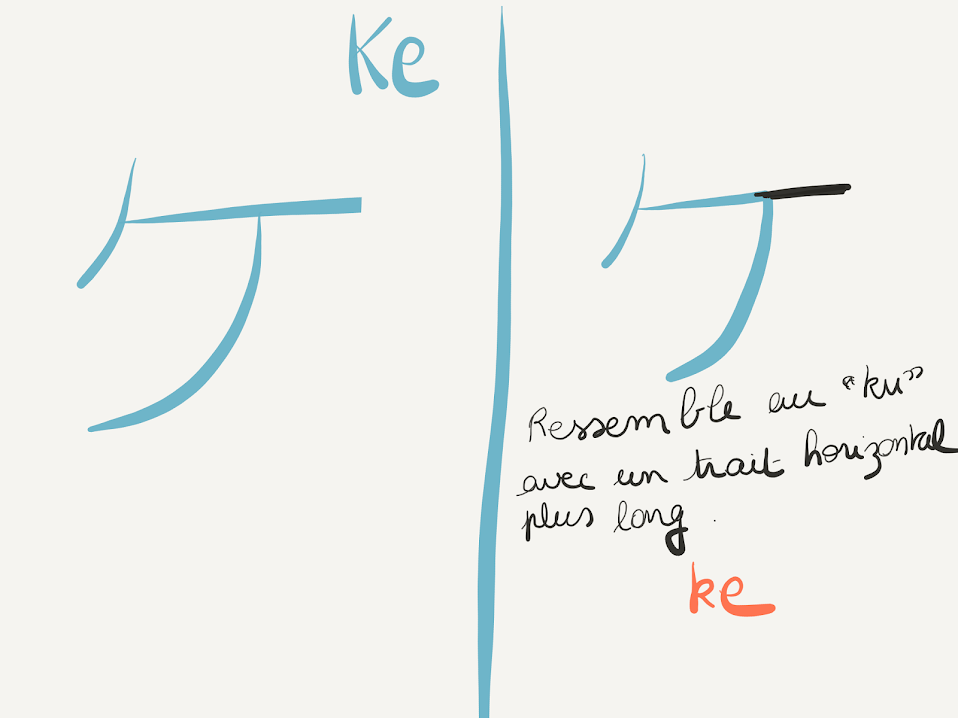 Ke
ケ
ケ
Ressemble au "ku"
avec un trait horizontal
plus long.
ke